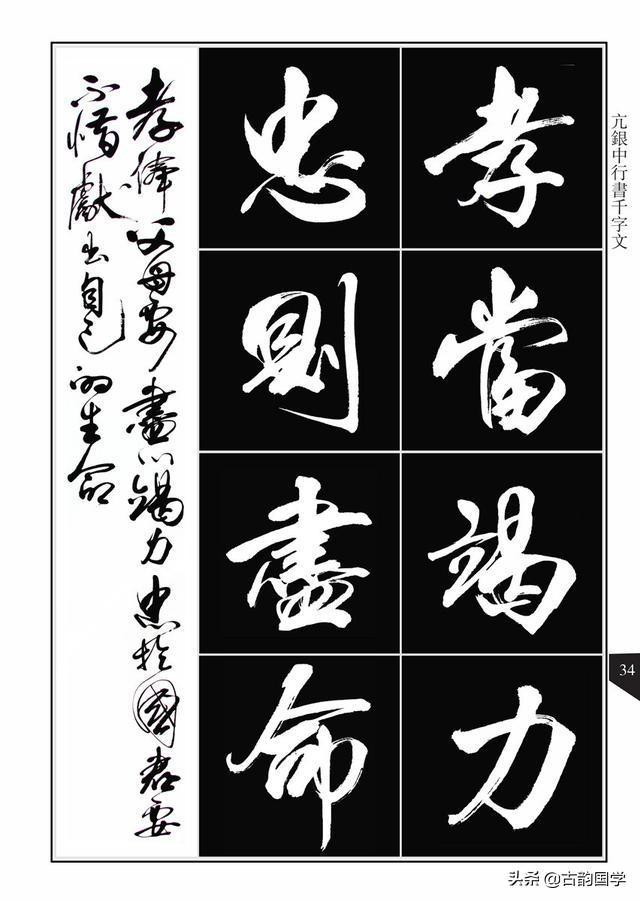 亢銀中行書千字文
孝當竭力
忠則盡命
孝俸父母要盡心竭力忠於國君要
不惜獻出自己的生命
34
头条 @古韵国学